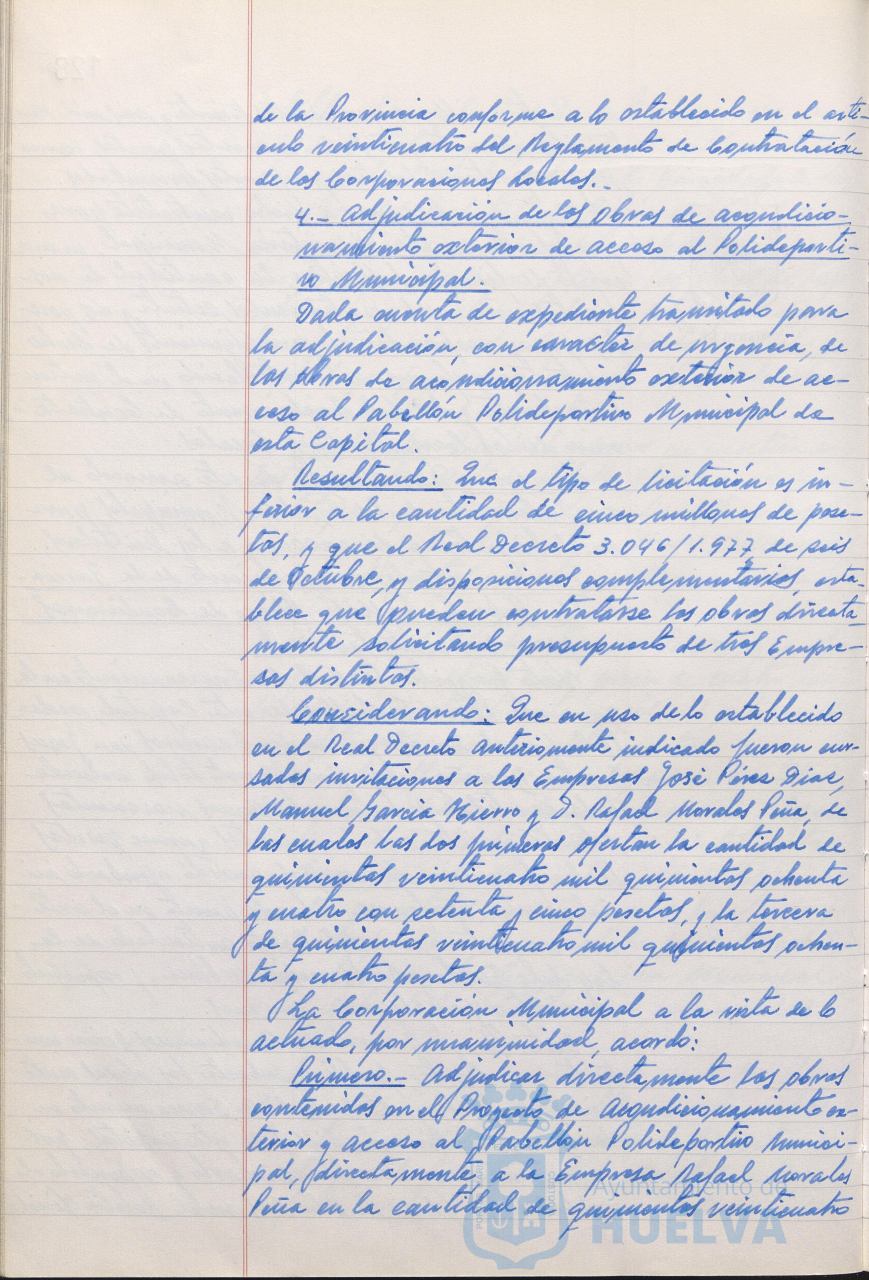 de la Provincia conforme a lo establecido en el artí-
culo veinticuatro del Reglamento de Contratación
de las Corporaciones Locales.-
4.- Adjudicación de las Obras de acondicio-
namiento exterior de acceso al Polideporti-
vo Municipal.
Dada cuenta de expediente tramitado para
la adjudicación, con carácter de urgencia, de
las Obras de acondicionamiento exterior de ac-
ceso al Pabellón Polideportivo Municipal de
esta Capital.
Resultando: Que el tipo de licitación es in-
ferior a la cantidad de cinco millones de pese-
tas, y que el Real Decreto 3.046/1.977, de seis
de Octubre, y disposiciones complementarias, esta-
blece que pueden contratarse las obras directa-
mente solicitando presupuesto de tres Empre-
sas distintas.
Considerando: Que en uso de lo establecido
en el Real Decreto anteriormente indicado fueron cur-
sadas invitaciones a las Empresas José Pérez Diaz,
Manuel García Hierro y D. Rafael Morales Peña, de
las cuales las dos primeras ofertan la cantidad de
quinientas veinticuatro mil quinientas ochenta
y cuatro con setenta y cinco pesetas, y la tercera
de quinientas veinticuatro mil quinientas ochen-
ta y cuatro pesetas.
La Corporación Municipal a la vista de lo
actuado, por unanimidad, acordó:
Primero.- Adjudicar directamente las obras
contenidas en el Proyecto de Acondicionamiento ex-
terior y acceso al Pabellón Polideportivo Munici-
pal, directamente, a la Empresa Rafael Morales
Peña en la cantidad de quinientas veinticuatro
Ayuntamiento de
HUELVA